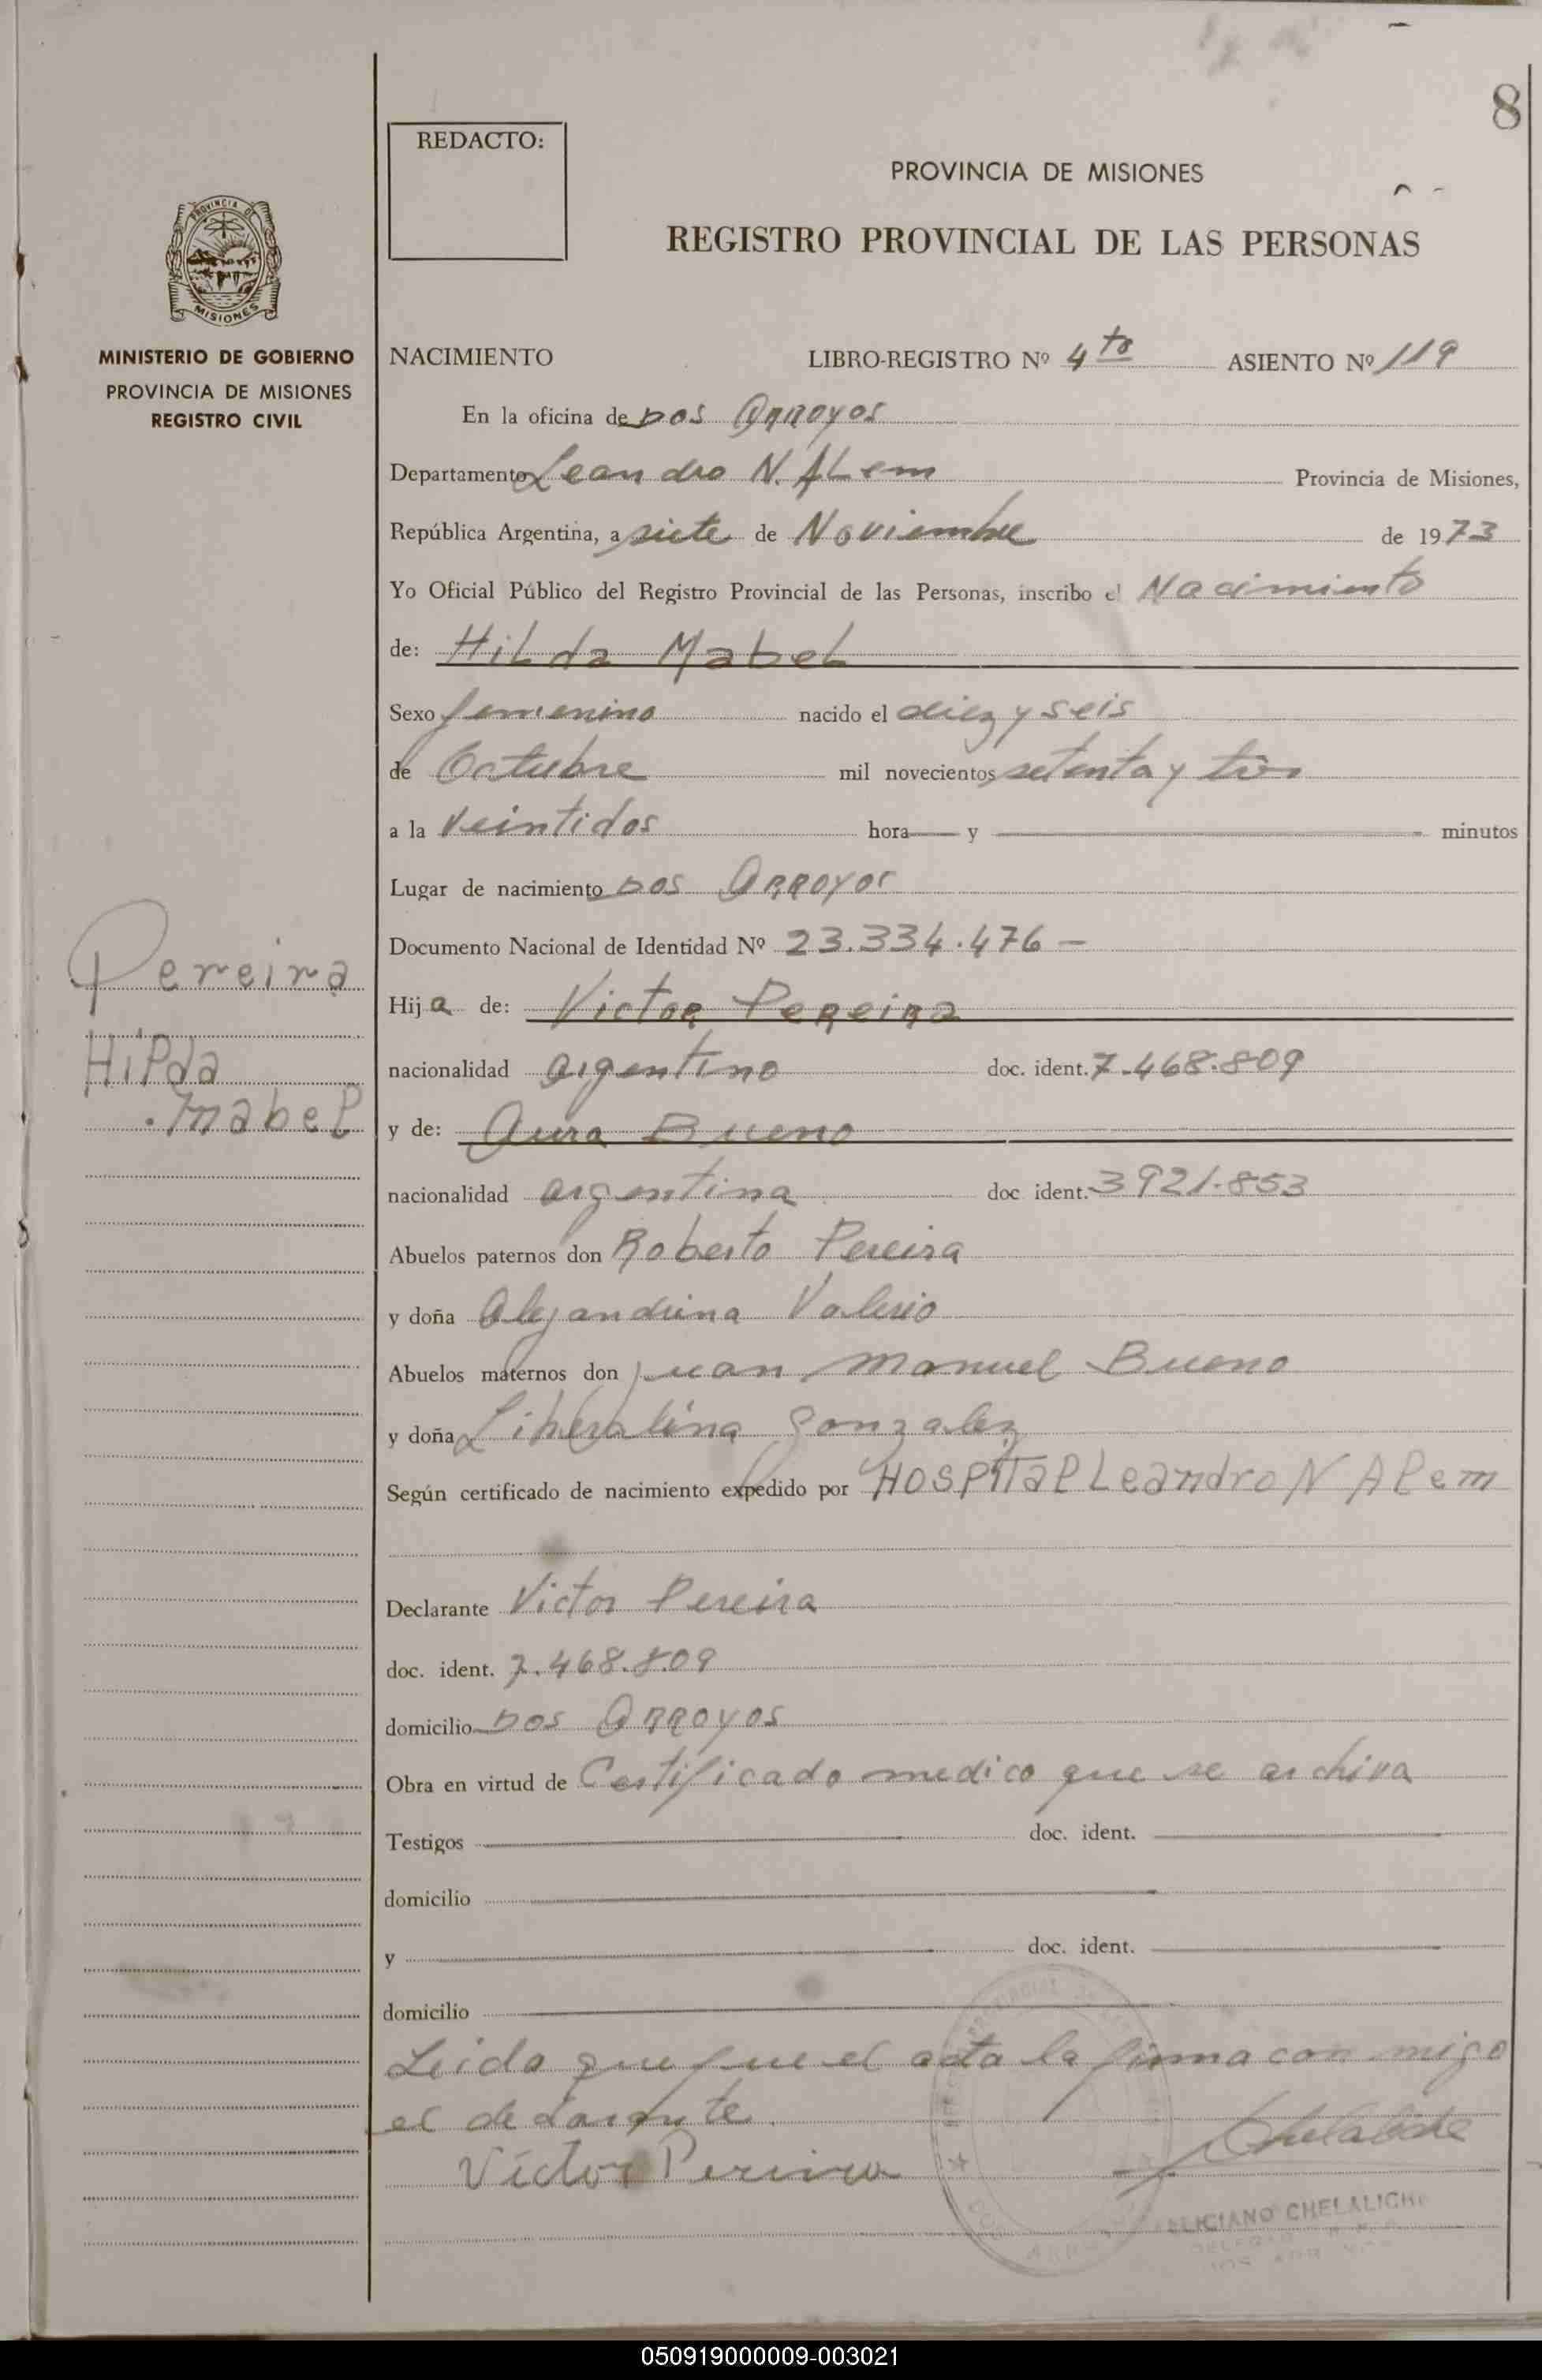 8
REDACTO:
PROVINCIA DE MISIONES
REGISTRO PROVINCIAL DE LAS PERSONAS
PROVINCIA DE
MISIONES
MINISTERIO DE GOBIERNO
PROVINCIA DE MISIONES
REGISTRO CIVIL
NACIMIENTO LIBRO-REGISTRO Nº 4to ASIENTO Nº 119
En la oficina de DOS ARROYOS
Departamento Leandro N. ALem Provincia de Misiones,
República Argentina, a siete de Noviembre de 1973
Yo Oficial Público del Registro Provincial de las Personas, inscribo el Nacimiento
de: HiLda MabeL
Sexo femenino nacido el diez y seis
de Octubre mil novecientos setenta y tres
a la veintidos hora y minutos
Lugar de nacimiento DOS ARROYOS
Documento Nacional de Identidad Nº 23.334.476 —
Pereira
Hilda
Mabel
Hija de: Victor Pereira
nacionalidad argentino doc. ident. 7.468.809
y de: Aura Bueno
nacionalidad argentina doc ident. 3921.853
Abuelos paternos don Roberto Pereira
y doña Alejandrina Valerio
Abuelos maternos don Juan Manuel Bueno
y doña Liberalina Gonzalez
Según certificado de nacimiento expedido por HOSPITAL Leandro N ALem
Declarante Victor Pereira
doc. ident. 7.468.809
domicilio DOS ARROYOS
Obra en virtud de Certificado medico que se archiva
Testigos doc. ident.
domicilio
y doc. ident.
domicilio
Leida que fue el acta la firma con migo
el
Victor Pereira
CHELALICH
050919000009-003021